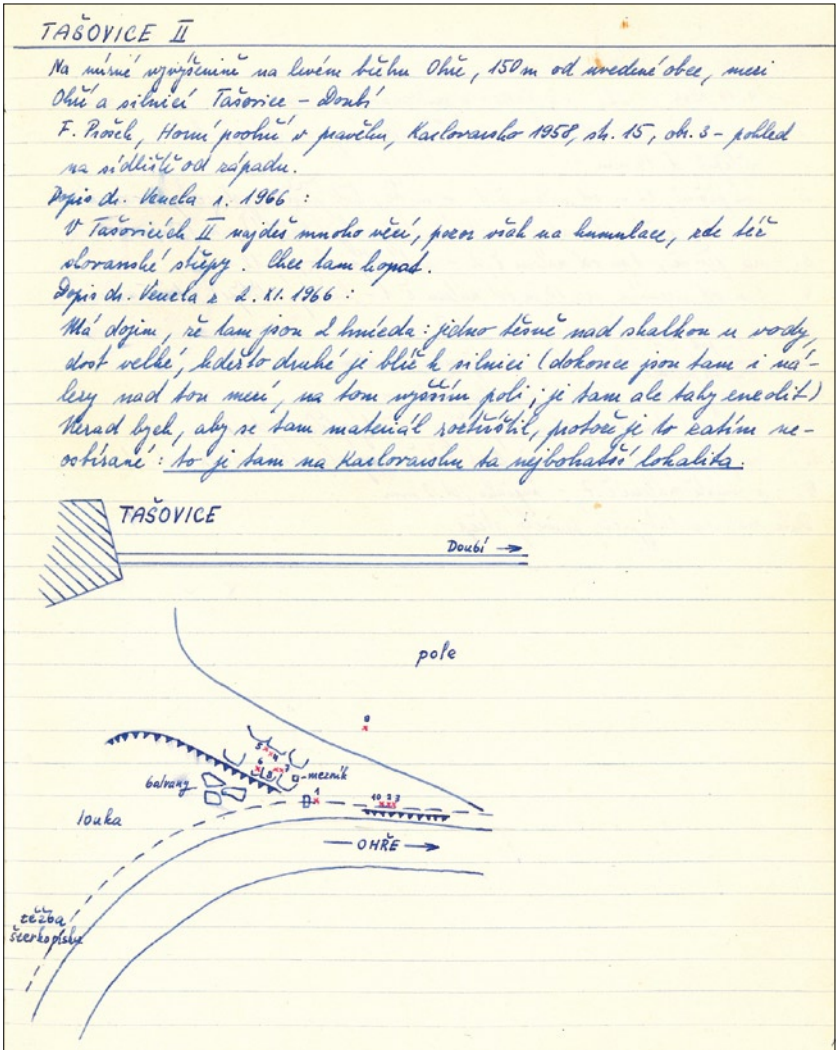 TAŠOVICE II
Na mírné vyvýšenině na levém břehu Ohře, 150 m od uvedené obce, mezi
Ohří a silnicí Tašovice - Doubí
F. Prošek, Horní poohří v pravěku, Karlovarsko 1958, str. 15, obr. 3 - pohled
na sídliště od západu.
Dopis dr. Vencla r. 1966 :
V Tašovicích II najdeš mnoho věcí, pozor však na kumulace, zde též
slovanské střepy. Chce tam kopat.
Dopis dr. Vencla z 2. XI. 1966 :
Má dojem, že tam jsou 2 hnízda: jedno těsně nad skalkou u vody,
dost velké, kdežto druhé je blíž k silnici (dokonce jsou tam i ná-
lezy nad tou mezí, na tom vyšším poli; je tam ale taky eneolit)
Nerad bych, aby se tam materiál roztříštil, protože je to zatím ne-
osbírané: to je tam na Karlovarsku ta nejbohatší lokalita.
TAŠOVICE
Doubí →
pole
9
5 4
6 8 7
mezník
balvany
1
10 2 3
louka
OHŘE →
těžba
štěrkopísku